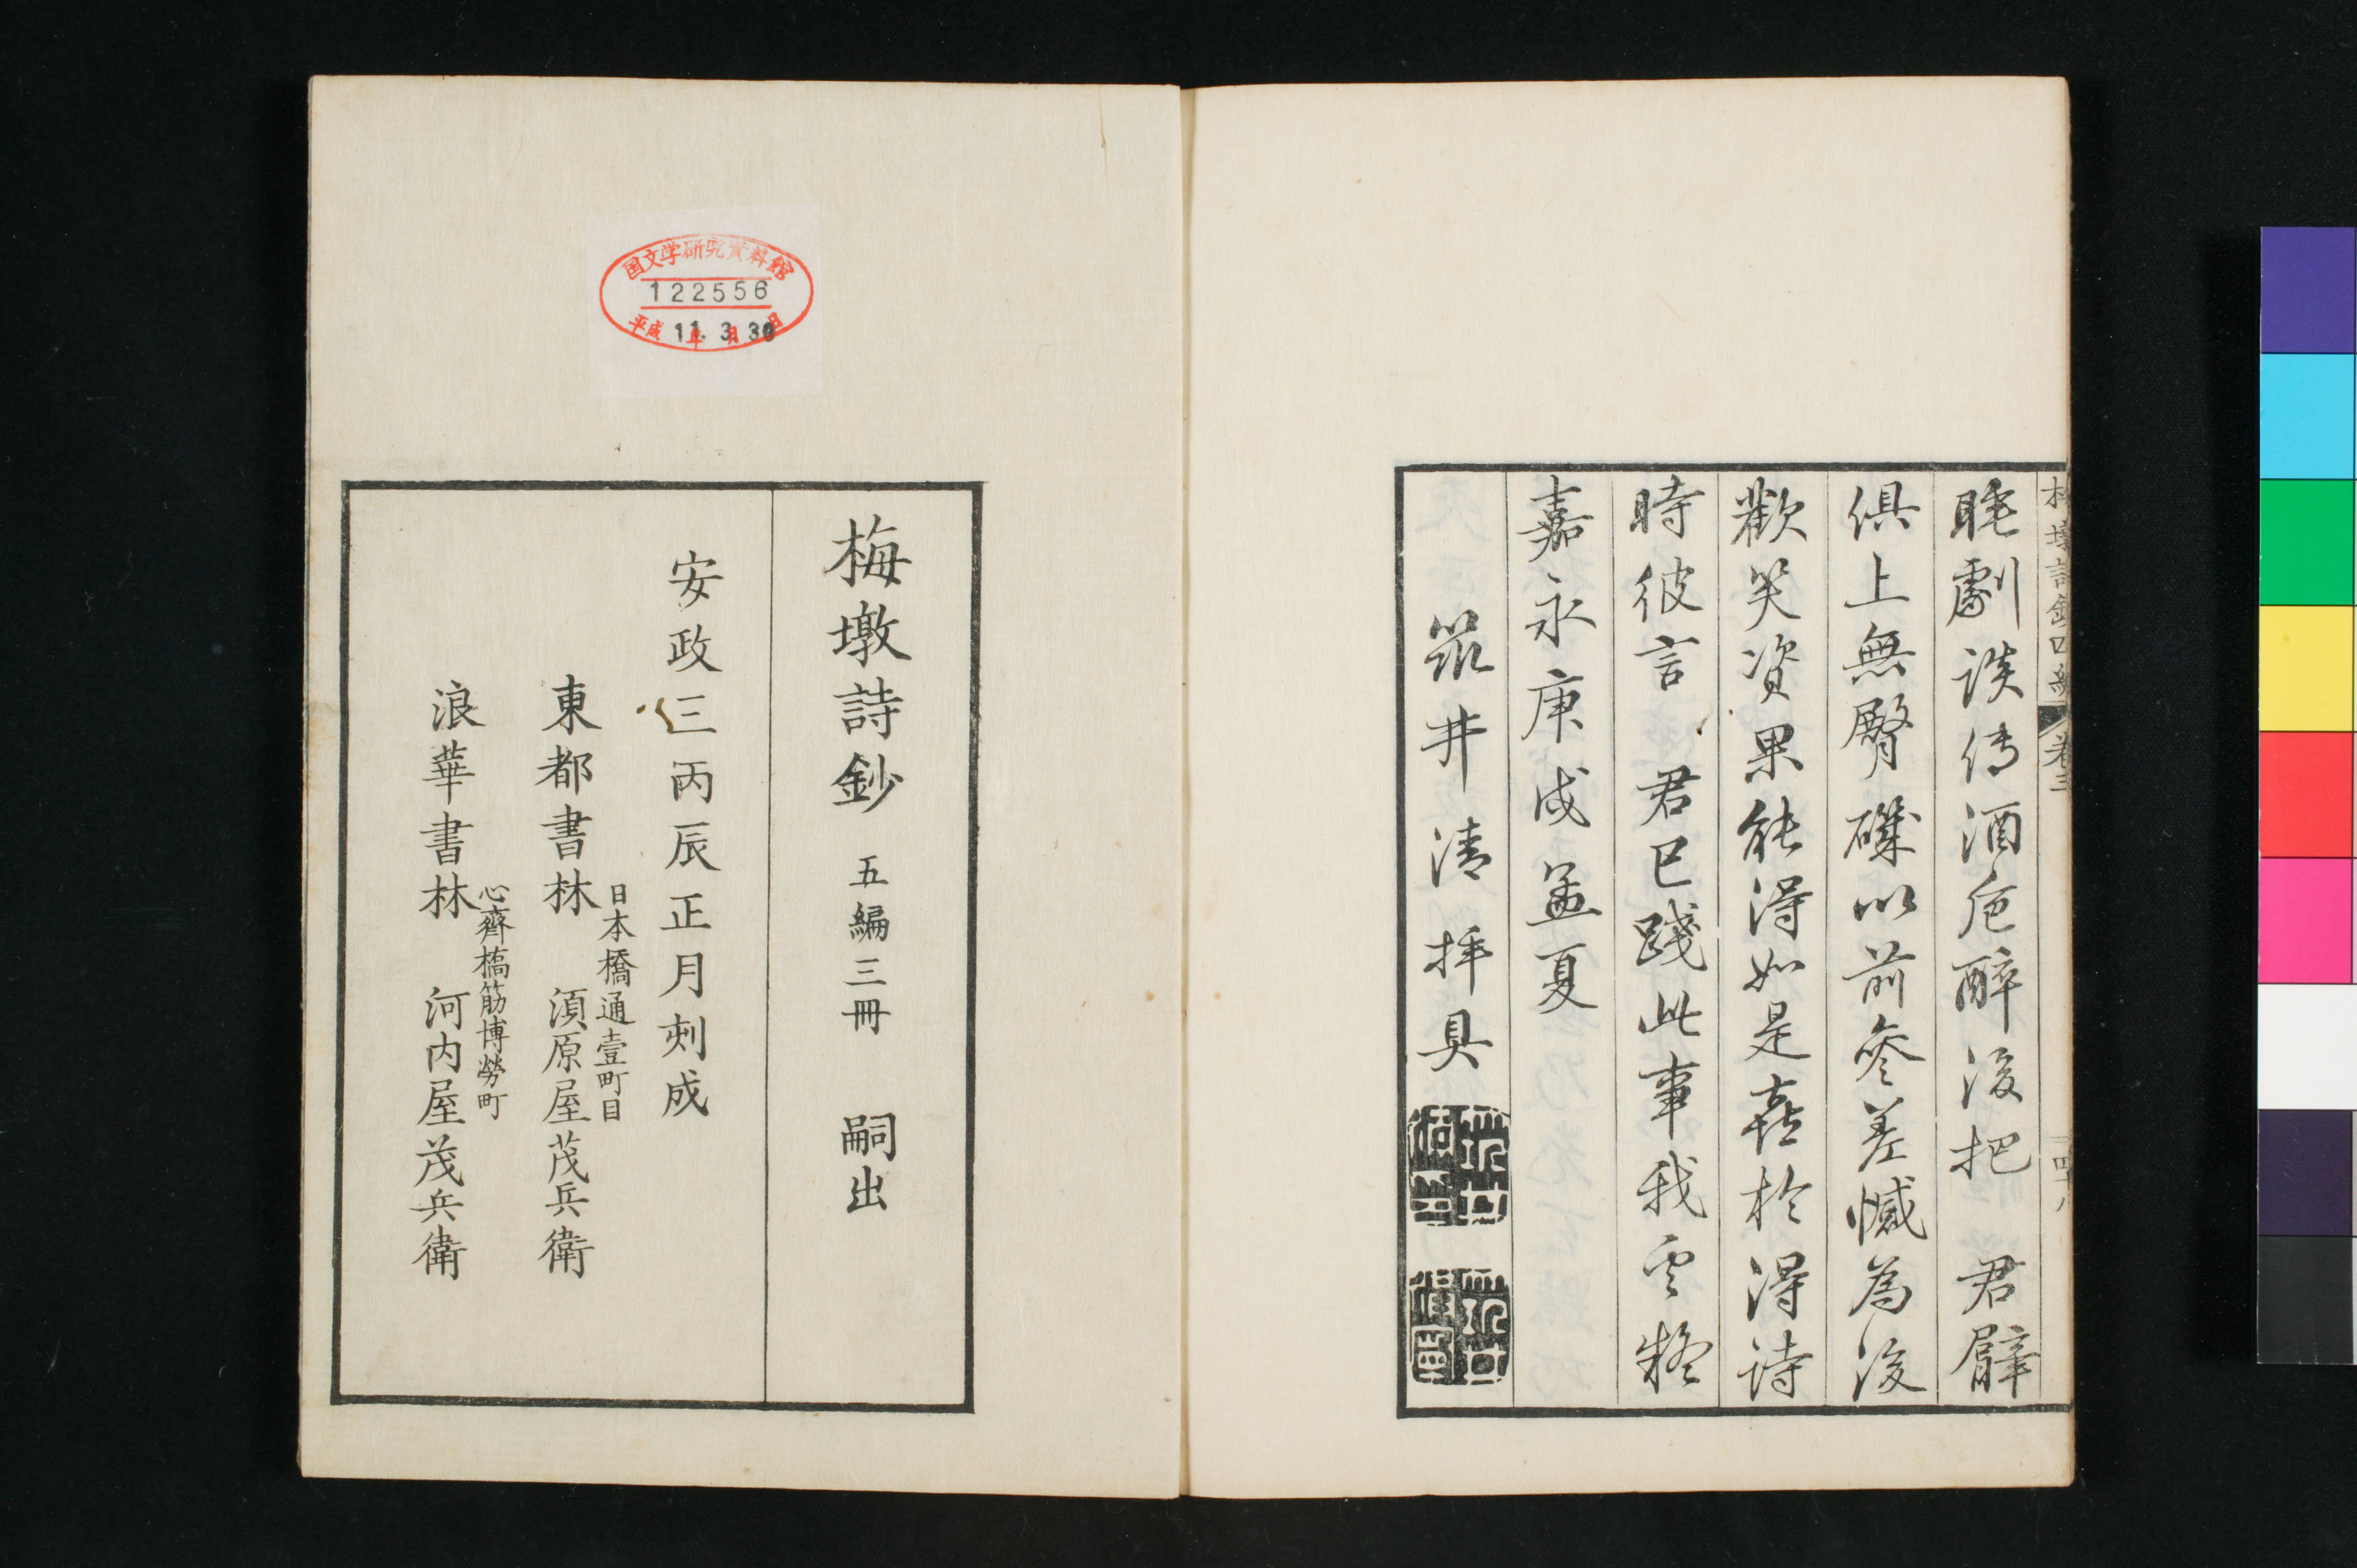 睡劇談傳酒巵醉後把　君臂
俱上無臀磯以前參差憾為後
歡笑資果能得如是喜於得詩
時彼言　君已踐此事我云糀
嘉永庚戌孟夏
筑井清拝具
梅墩詩鈔四編
卷三
四十八
梅墩詩鈔　五編三冊　嗣出
安政三丙辰正月刻成
日本橋通壹町目
東都書林　須原屋茂兵衛
心齊橋筋博勞町
浪華書林　河内屋茂兵衛
国文学研究資料館
122556
平成 11年 3月 30日